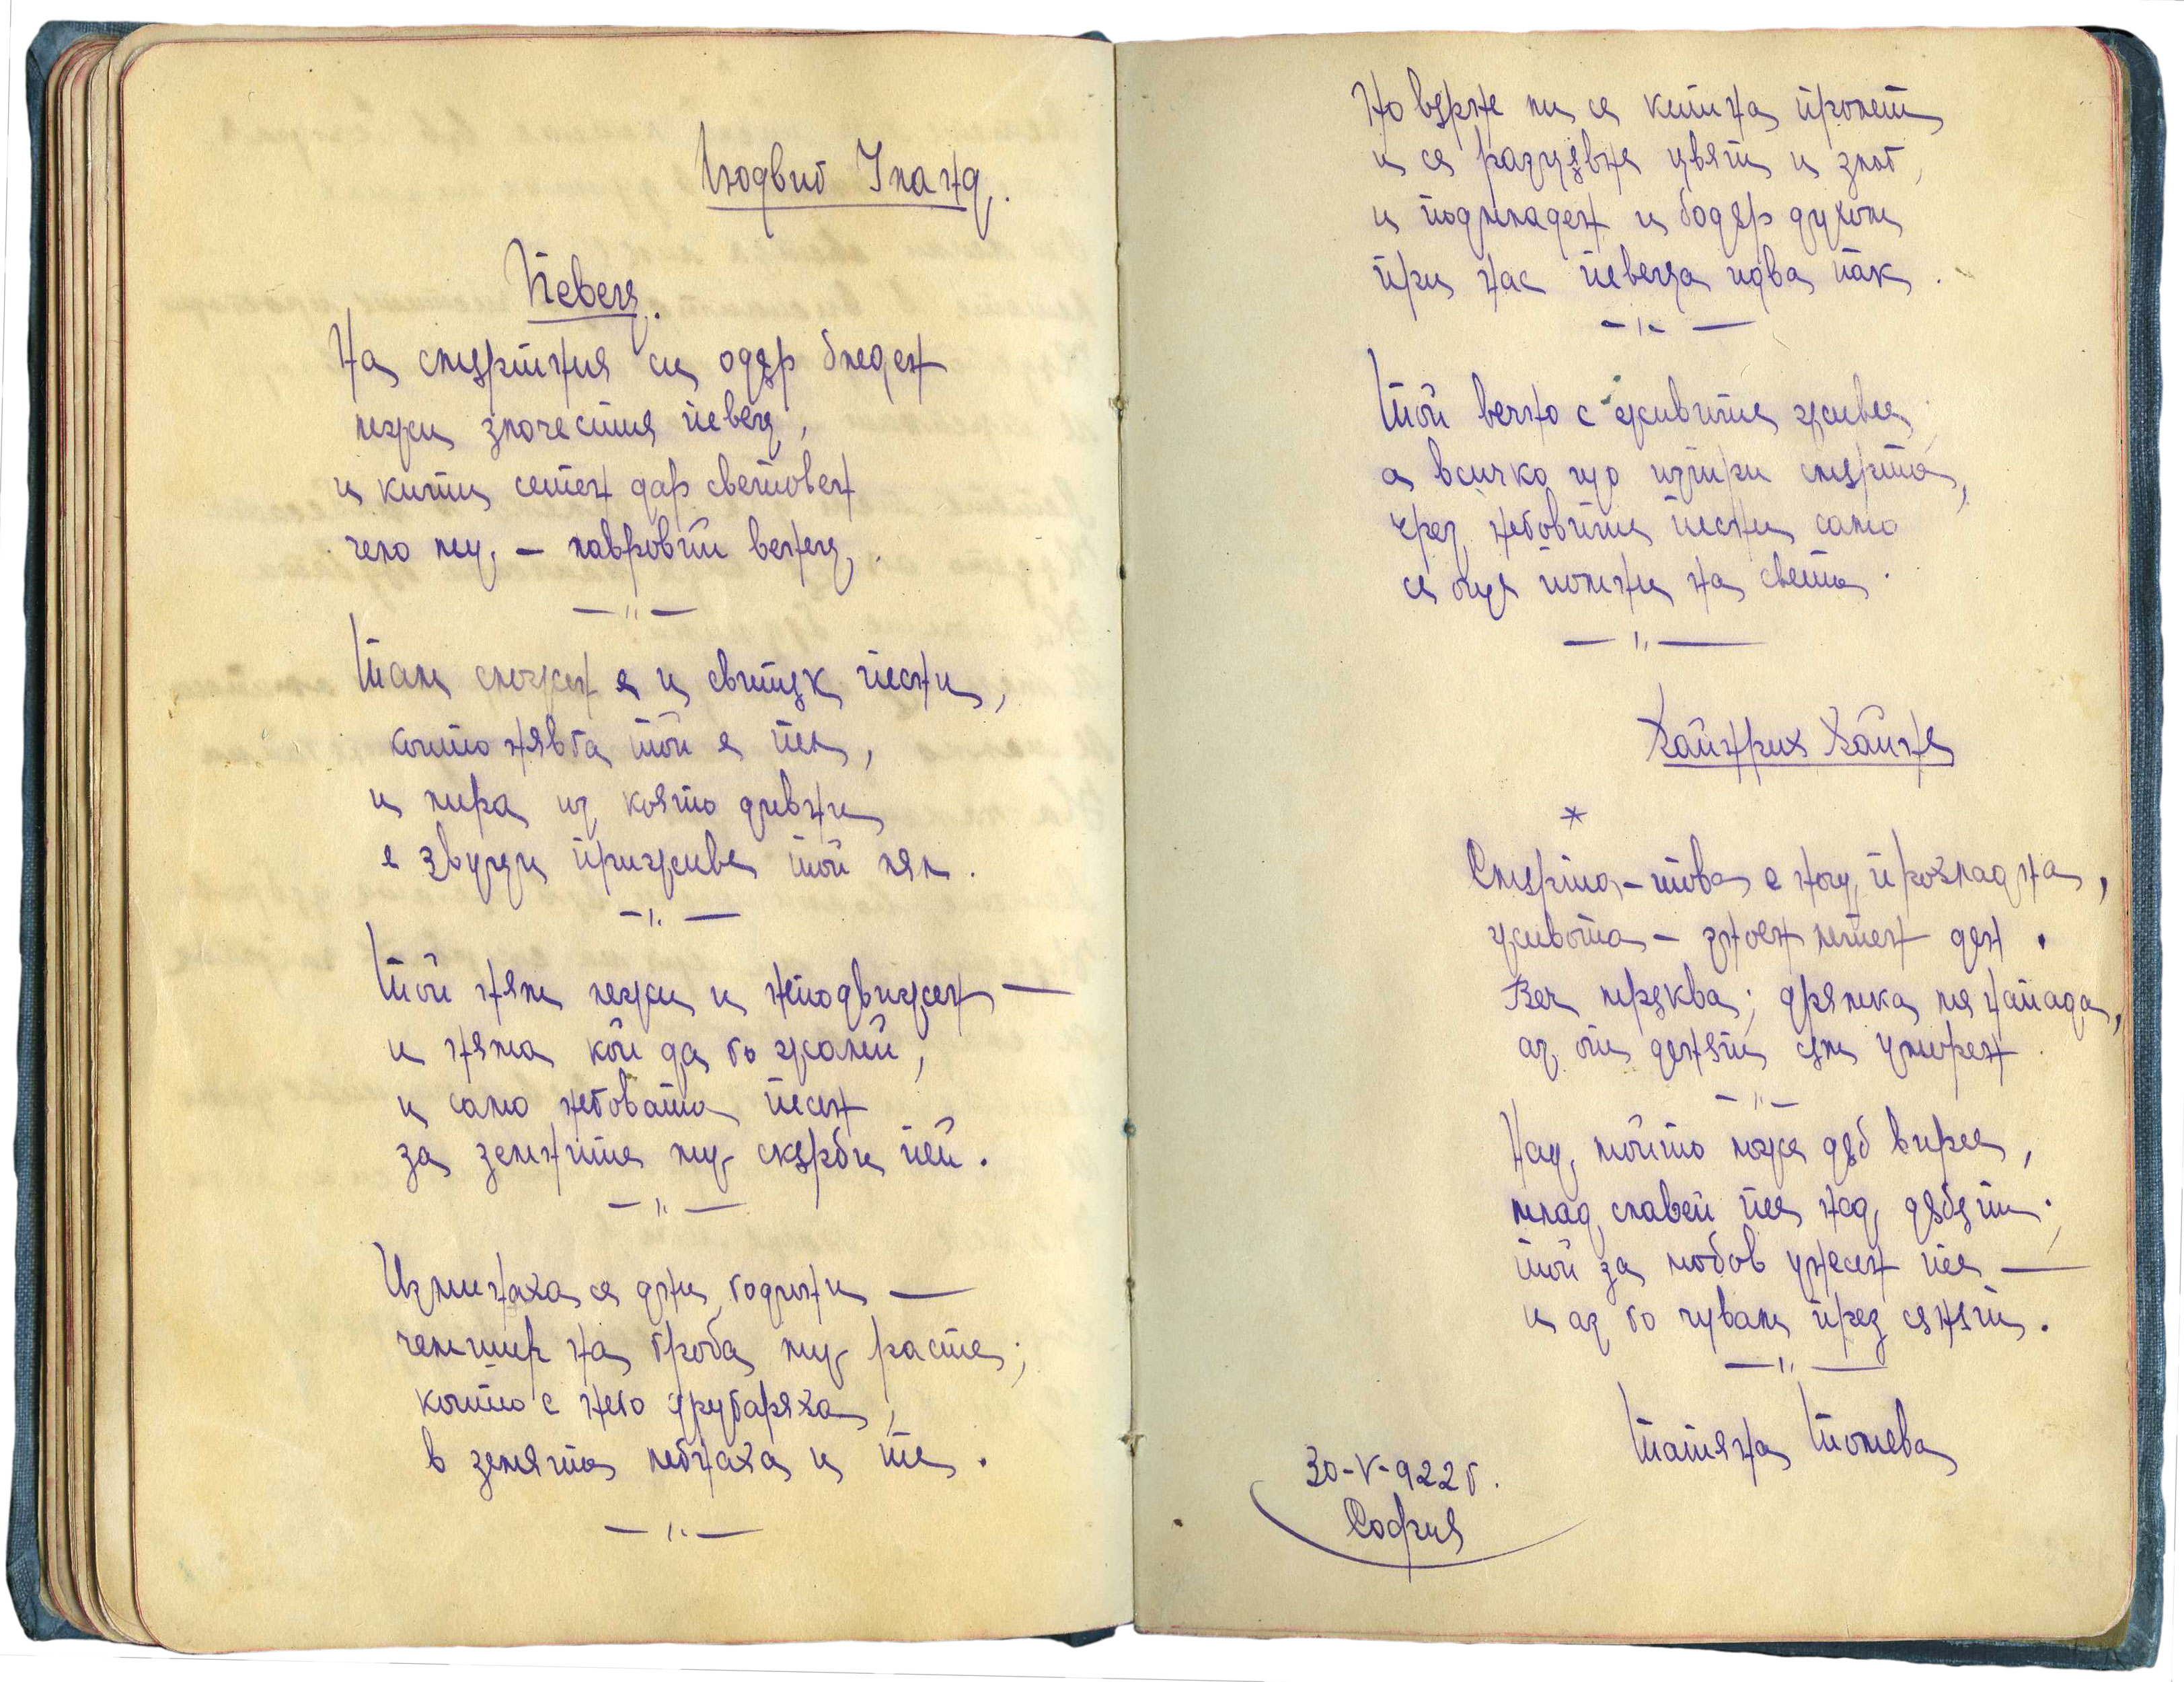 Людвиг Уланд.
Певец.
На смъртния си одър бледен
лежи злочестия певец,
и кити сетен дар световен
чело му, – лавровий венец,
– " –
Там сложен е и свитък песни,
които нявга той е пел,
и лира из която дивни
е звуци приживе той лял.
– " –
Той ням лежи и неподвижен —
и няма кой да го жалей,
и само неговата песен
за земните му скърби пей.
– " –
Изминаха се дни, години —
чемшир на гроба му расте;
които с него другаряха,
в земята легнаха и те.
– " –
Но върне ли се китна пролет
и се разцъвне цвят и злак,
и подмладен и бодър духом
при нас певеца идва пак.
– " –
Той вечно с живите живее,
а всичко що изтри смъртта,
чрез неговите песни само
се още помни на света.
– " –
Хайнрих Хайне
*
Смъртта – това е нощ прохладна,
живота – зноен летен ден.
Веч мръква; дрямка ме напада,
аз от денят съм уморен
– " –
Над мойто ложе дъб вирее,
млад славей пее над дъбът;
той за любов унесен пее —
и аз го чувам през сънят.
– " –
Татяна Тошева
30-V-922 г.
София